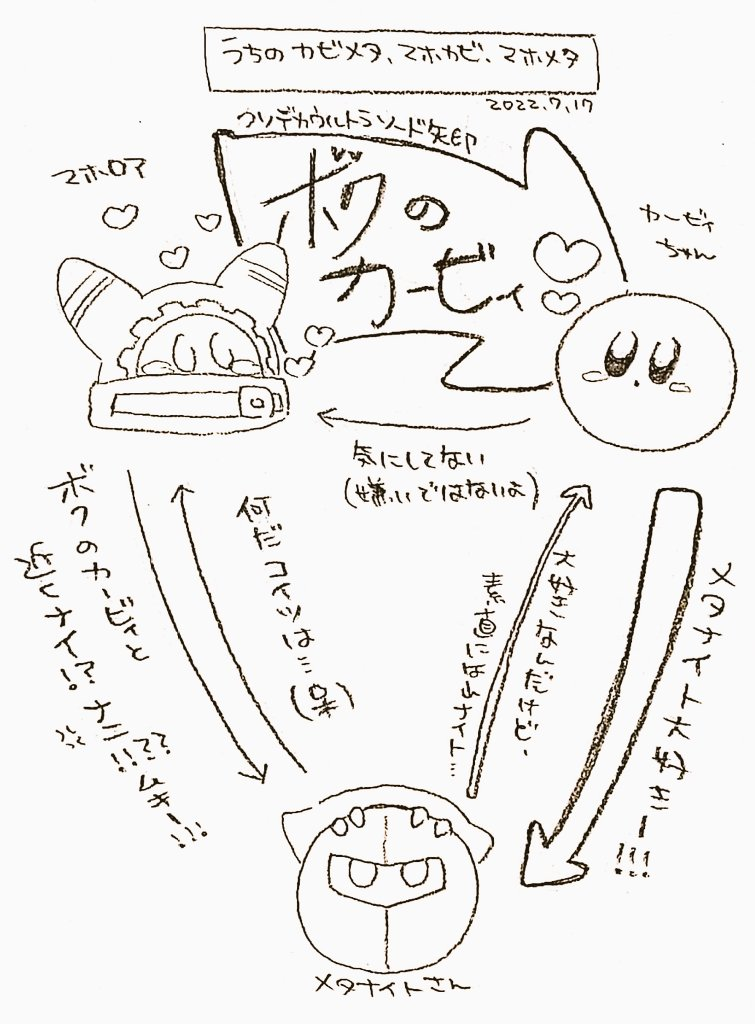 うちの カビメタ、マホカビ、マホメタ
2022.7.17
クソデカウルトラソード矢印
マホロア
ボクの
カービィ
カービィ
ちゃん
気にしてない
(嫌いではないよ)
ボクのカービィと
近くナイ!? ナニ!!?? ムキー!!!
何だコイツは…
(呆)
大好きなんだけど、
素直にはムナイト…
メタナイト大好きー!!!
メタナイトさん